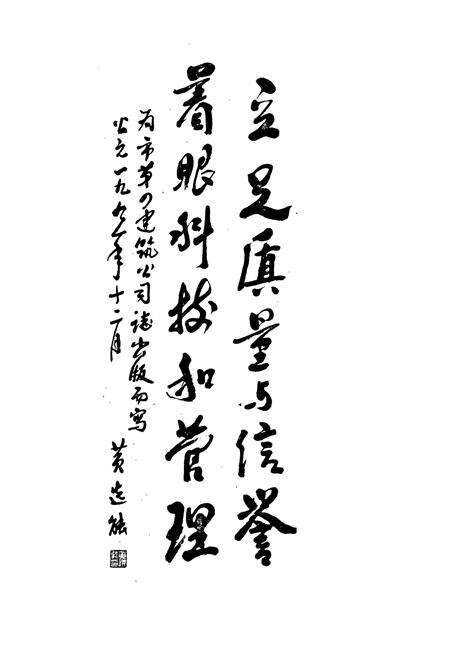 立足质量与信誉
着眼科技和管理
为市第四建筑公司志出版而写
公元一九九一年十二月
黄选能